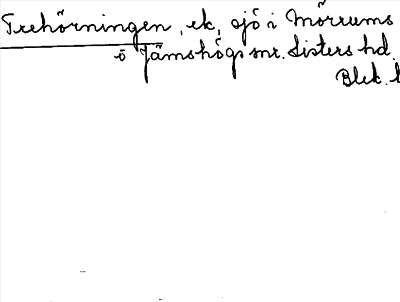 Trehörningen, ek, sjö i Mörrums
o Jämshögs snr. Listers hd.
Blek. l